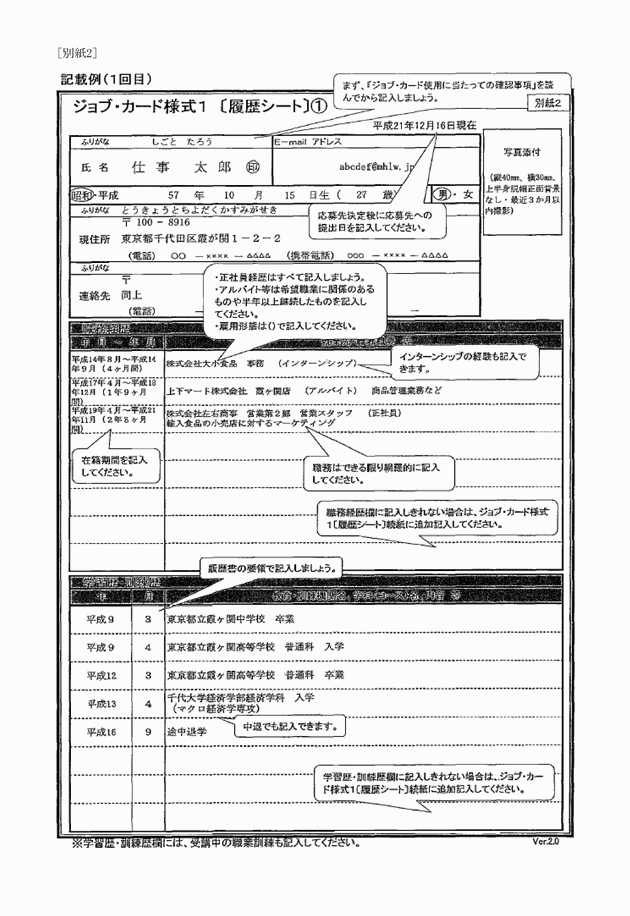 ［別紙2］
記載例（1回目）
まず、「ジョブ・カード使用に当たっての確認事項」を読
んでから記入しましょう。
ジョブ・カード様式１〔履歴シート〕①
別紙2
平成21年12月16日現在
ふりがな しごと たろう
E-mail アドレス
氏 名 仕 事 太 郎 印
abcdef@mhlw.jp
写真添付
（縦40mm、横30mm、
上半身脱帽正面背景
なし・最近３か月以
内撮影）
昭和・平成 57 年 10 月 15 日生（ 27 歳） 男・女
ふりがな とうきょうとちよだくかすみがせき
〒 100 - 8916
現住所 東京都千代田区霞が関１－２－２
（電話） ○○ －×××× －△△△△ （携帯電話） ○○○ －×××× －△△△△
応募先決定後に応募先への
提出日を記入してください。
ふりがな
〒
連絡先 同上
（電話）
・正社員経歴はすべて記入しましょう。
・アルバイト等は希望職業に関係のある
ものや半年以上継続したものを記入し
てください。
・雇用形態は（）で記入してください。
年 月 ～ 年 月
平成14年８月～平成14
年９月（４ヶ月間）
株式会社大小食品 事務 （インターンシップ）
インターンシップの経験も記入で
きます。
平成17年４月～平成18
年12月（１年９ヶ月
間）
上下マート株式会社 霞ヶ関店 （アルバイト） 商品管理業務など
平成19年４月～平成21
年11月（２年８ヶ月
間）
株式会社左右商事 営業第２部 営業スタッフ （正社員）
輸入食品の小売店に対するマーケティング
在籍期間を記入
してください。
職務はできる限り網羅的に記入
してください。
職務経歴欄に記入しきれない場合は、ジョブ・カード様式
1〔履歴シート〕続紙に追加記入してください。
履歴書の要領で記入しましょう。
学習歴・訓練歴
年 月 教育・訓練機関名、学科（コース）名、内容 等
平成９ 3 東京都立霞ヶ関中学校 卒業
平成９ 4 東京都立霞ヶ関高等学校 普通科 入学
平成12 3 東京都立霞ヶ関高等学校 普通科 卒業
平成13 4 千代大学経済学部経済学科 入学
（マクロ経済学専攻）
平成16 9 途中退学
中退でも記入できます。
学習歴・訓練歴欄に記入しきれない場合は、ジョブ・カー
ド様式1〔履歴シート〕続紙に追加記入してください。
※学習歴・訓練歴欄には、受講中の職業訓練も記入してください。
Ver.2.0